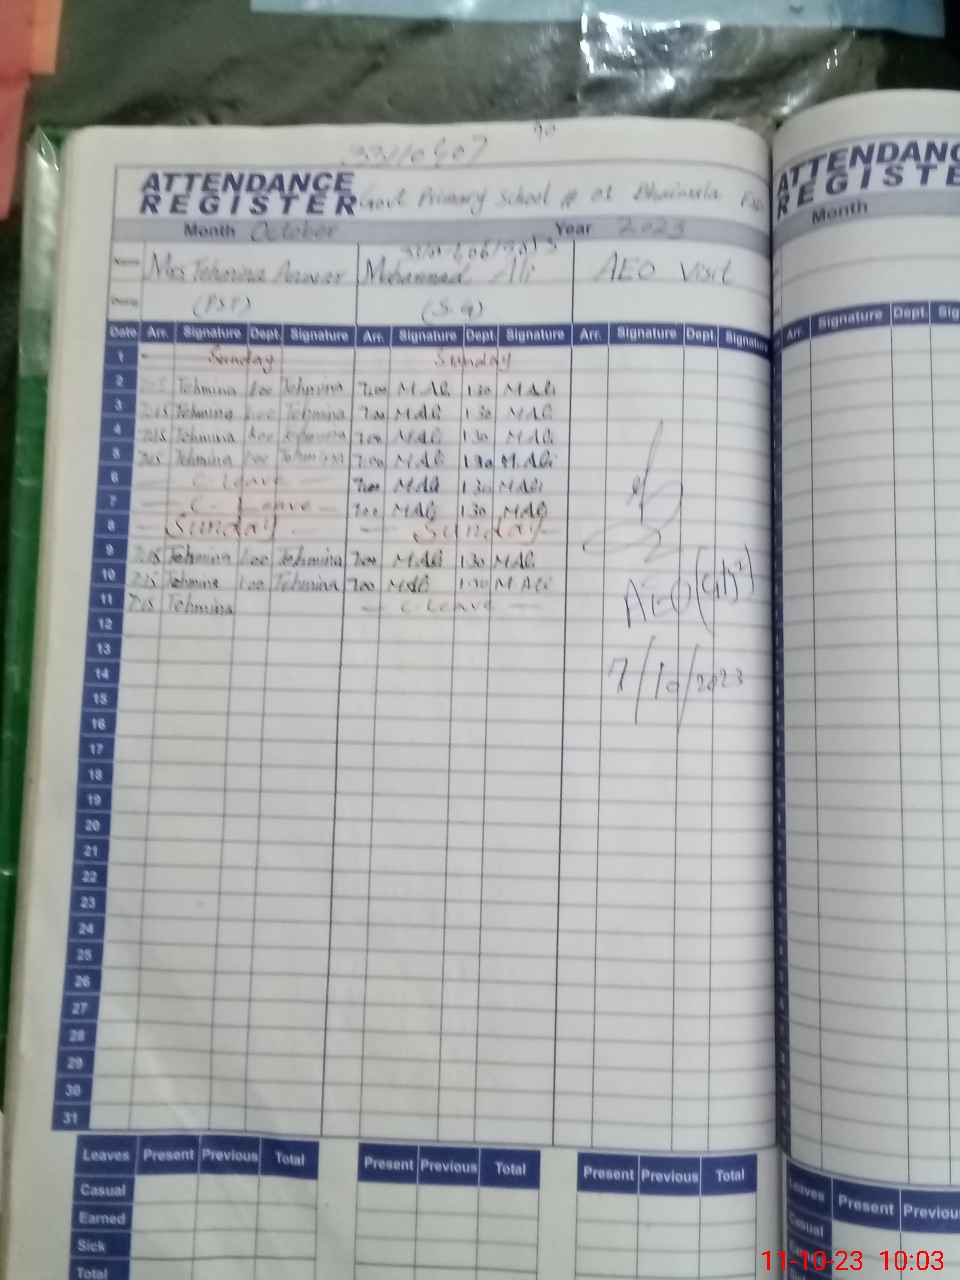 ATTENDANCE REGISTER Govt Primary School # 01
Month October Year 2023
Mrs Tehmina Anwar Mohammad Ali AEO Visit
(PST) (S.G)
Date Arr. Signature Dept. Signature Arr. Signature Dept. Signature Arr. Signature Dept. Signature
1 Sunday Sunday
2 Tehmina 1.00 Tehmina 7.00 M Ali 1.30 M Ali
3 7.15 Tehmina 1.00 Tehmina 7.00 M Ali 1.30 M Ali
4 7.15 Tehmina 1.00 Tehmina 7.00 M Ali 1.30 M Ali
5 7.15 Tehmina 1.00 Tehmina 7.00 M Ali 1.30 M Ali
6 — C. Leave — 7.00 M Ali 1.30 M Ali
7 — C. Leave — 7.00 M Ali 1.30 M Ali
8 — Sunday — — Sunday —
9 7.15 Tehmina 1.00 Tehmina 7.00 M Ali 1.30 M Ali
10 7.15 Tehmina 1.00 Tehmina 7.00 M Ali 1.30 M Ali
11 7.15 Tehmina — C. Leave —
AEO
12
13
14
7/10/2023
15
16
17
18
19
20
21
22
23
24
25
26
27
28
29
30
31
Leaves Present Previous Total Present Previous Total Present Previous Total
Casual
Earned
Sick
Total
ATTENDANC
REGISTE
Month
Arr. Signature Dept. Sig
Leaves Present Previou
Casual
11-10-23 10:03